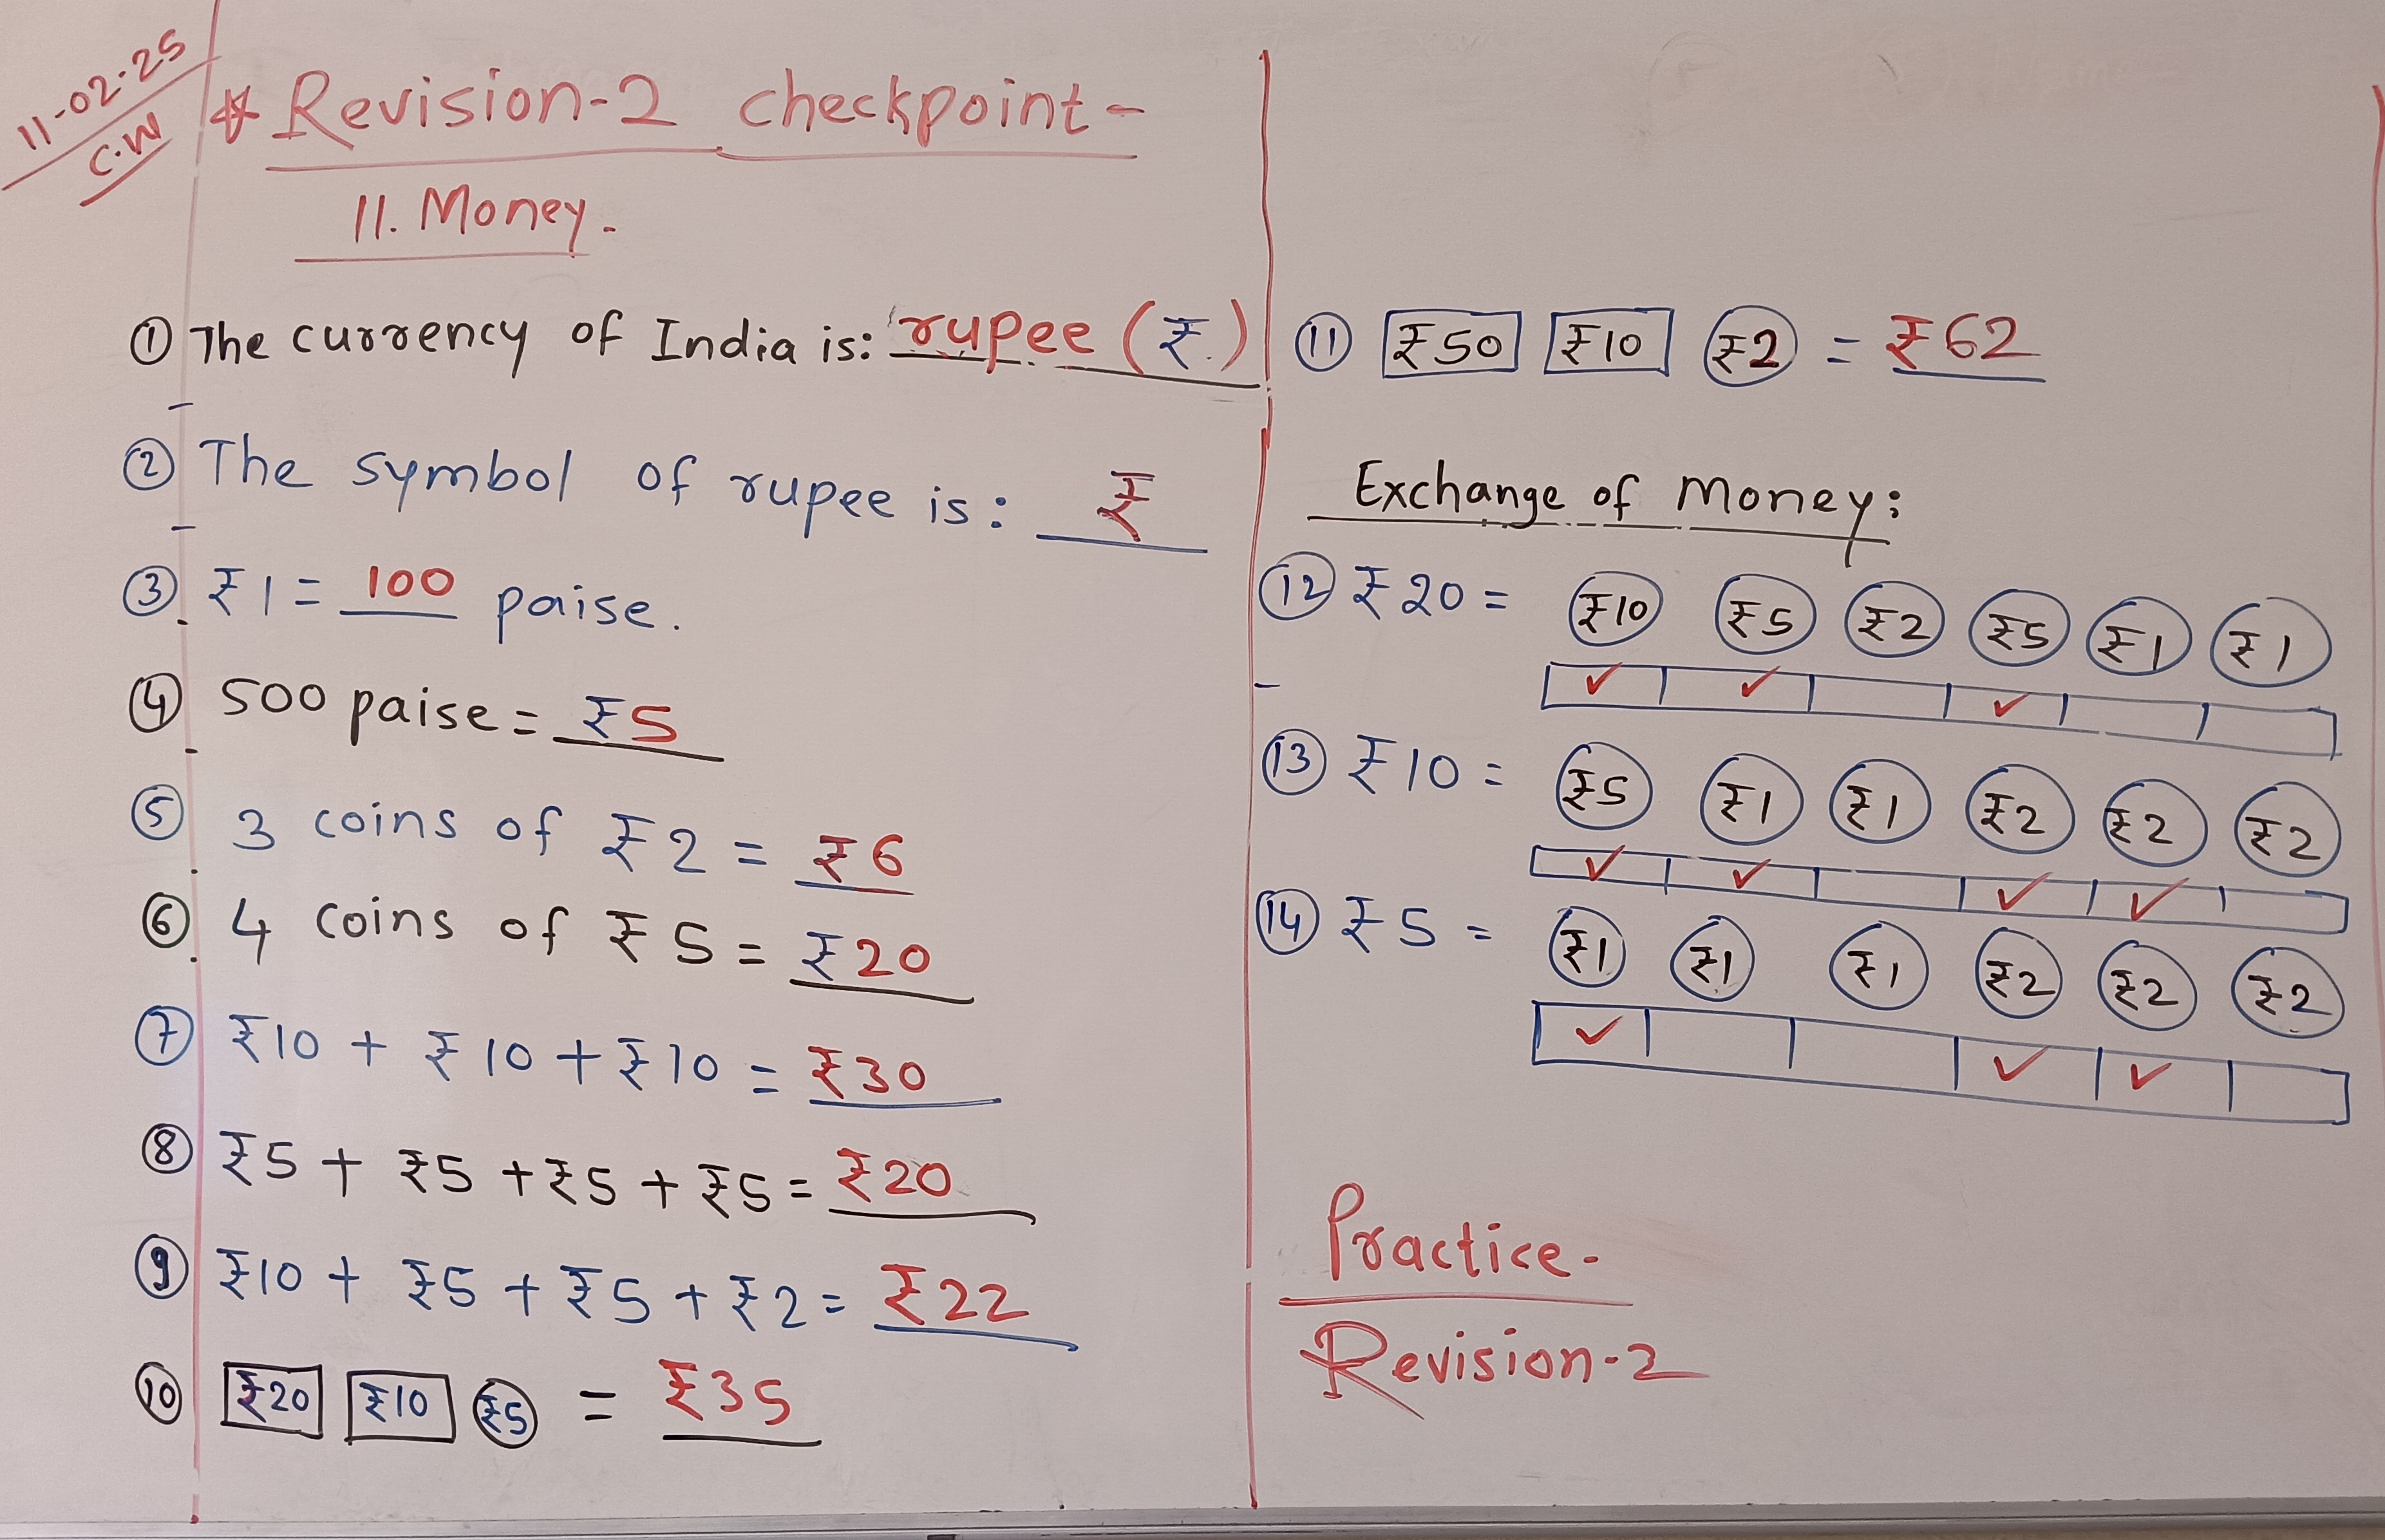 11-02-25
C.W
* Revision-2 checkpoint-
11. Money.
① The currency of India is: rupee (₹.)
② The symbol of rupee is: ₹
③ ₹1 = 100 paise.
④ 500 paise = ₹5
⑤ 3 coins of ₹2 = ₹6
⑥ 4 coins of ₹5 = ₹20
⑦ ₹10 + ₹10 + ₹10 = ₹30
⑧ ₹5 + ₹5 + ₹5 + ₹5 = ₹20
⑨ ₹10 + ₹5 + ₹5 + ₹2 = ₹22
⑩ ₹20 ₹10 ₹5 = ₹35
⑪ ₹50 ₹10 ₹2 = ₹62
Exchange of Money:
⑫ ₹20 = ₹10 ₹5 ₹2 ₹5 ₹1 ₹1
✓ ✓ ✓
⑬ ₹10 = ₹5 ₹1 ₹1 ₹2 ₹2 ₹2
✓ ✓ ✓ ✓
⑭ ₹5 = ₹1 ₹1 ₹1 ₹2 ₹2 ₹2
✓ ✓ ✓
Practice-
Revision-2